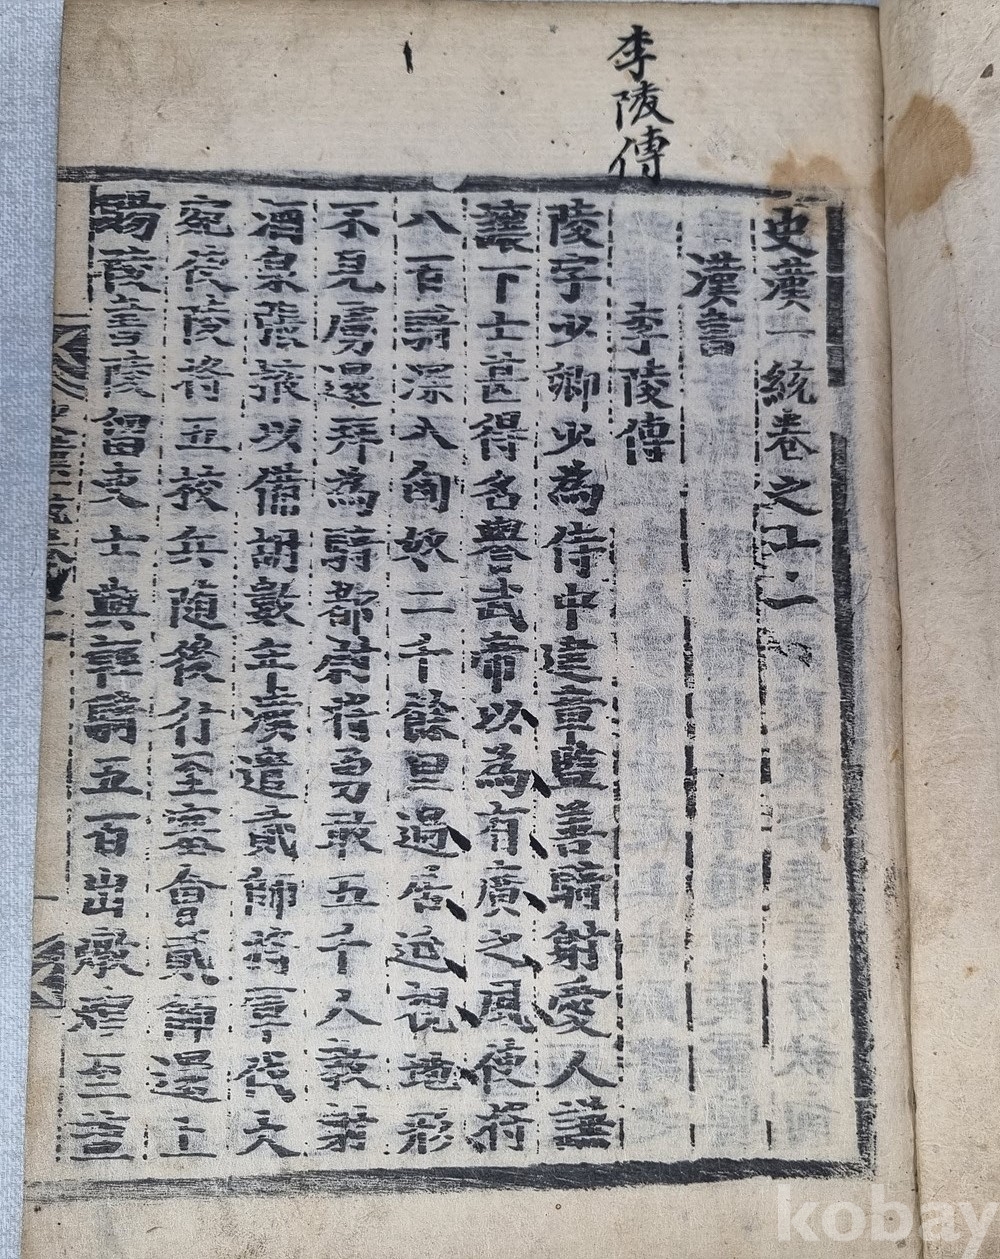 李陵傳
史漢一統卷之
漢書
李陵傳
陵字少卿少為侍中建章監善騎射愛人謙
讓下士甚得名譽武帝以為有廣之風使將
八百騎深入匈奴二千餘里過居延視地形
不見虜還拜為騎都尉將勇敢五千人教射
酒泉張掖以備胡數年漢遣貳師將軍伐大
宛使陵將五校兵隨後行至塞會貳師還上
賜陵書陵留吏士與輕騎五百出燉煌至益
kobay